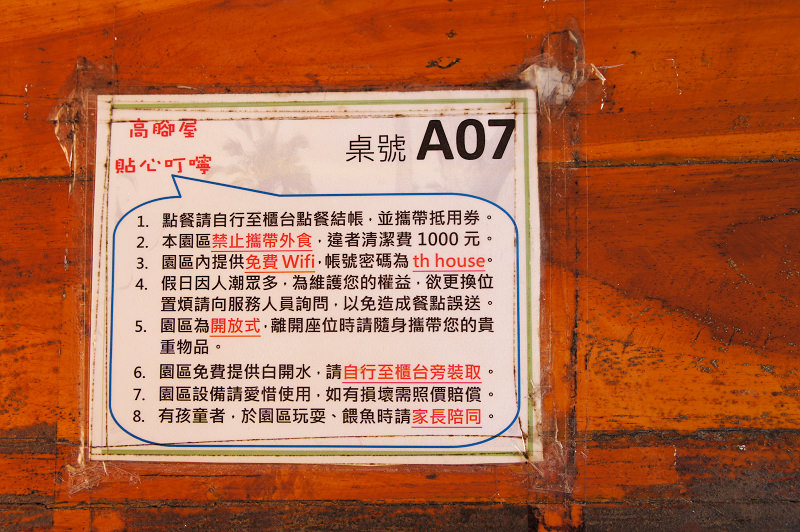 高腳屋
貼心叮嚀
桌號 A07
1. 點餐請自行至櫃台點餐結帳，並攜帶抵用券。
2. 本園區禁止攜帶外食，違者清潔費 1000 元。
3. 園區內提供免費 Wifi，帳號密碼為 th house。
4. 假日因人潮眾多，為維護您的權益，欲更換位
置煩請向服務人員詢問，以免造成餐點誤送。
5. 園區為開放式，離開座位時請隨身攜帶您的貴
重物品。
6. 園區免費提供白開水，請自行至櫃台旁裝取。
7. 園區設備請愛惜使用，如有損壞需照價賠償。
8. 有孩童者，於園區玩耍、餵魚時請家長陪同。